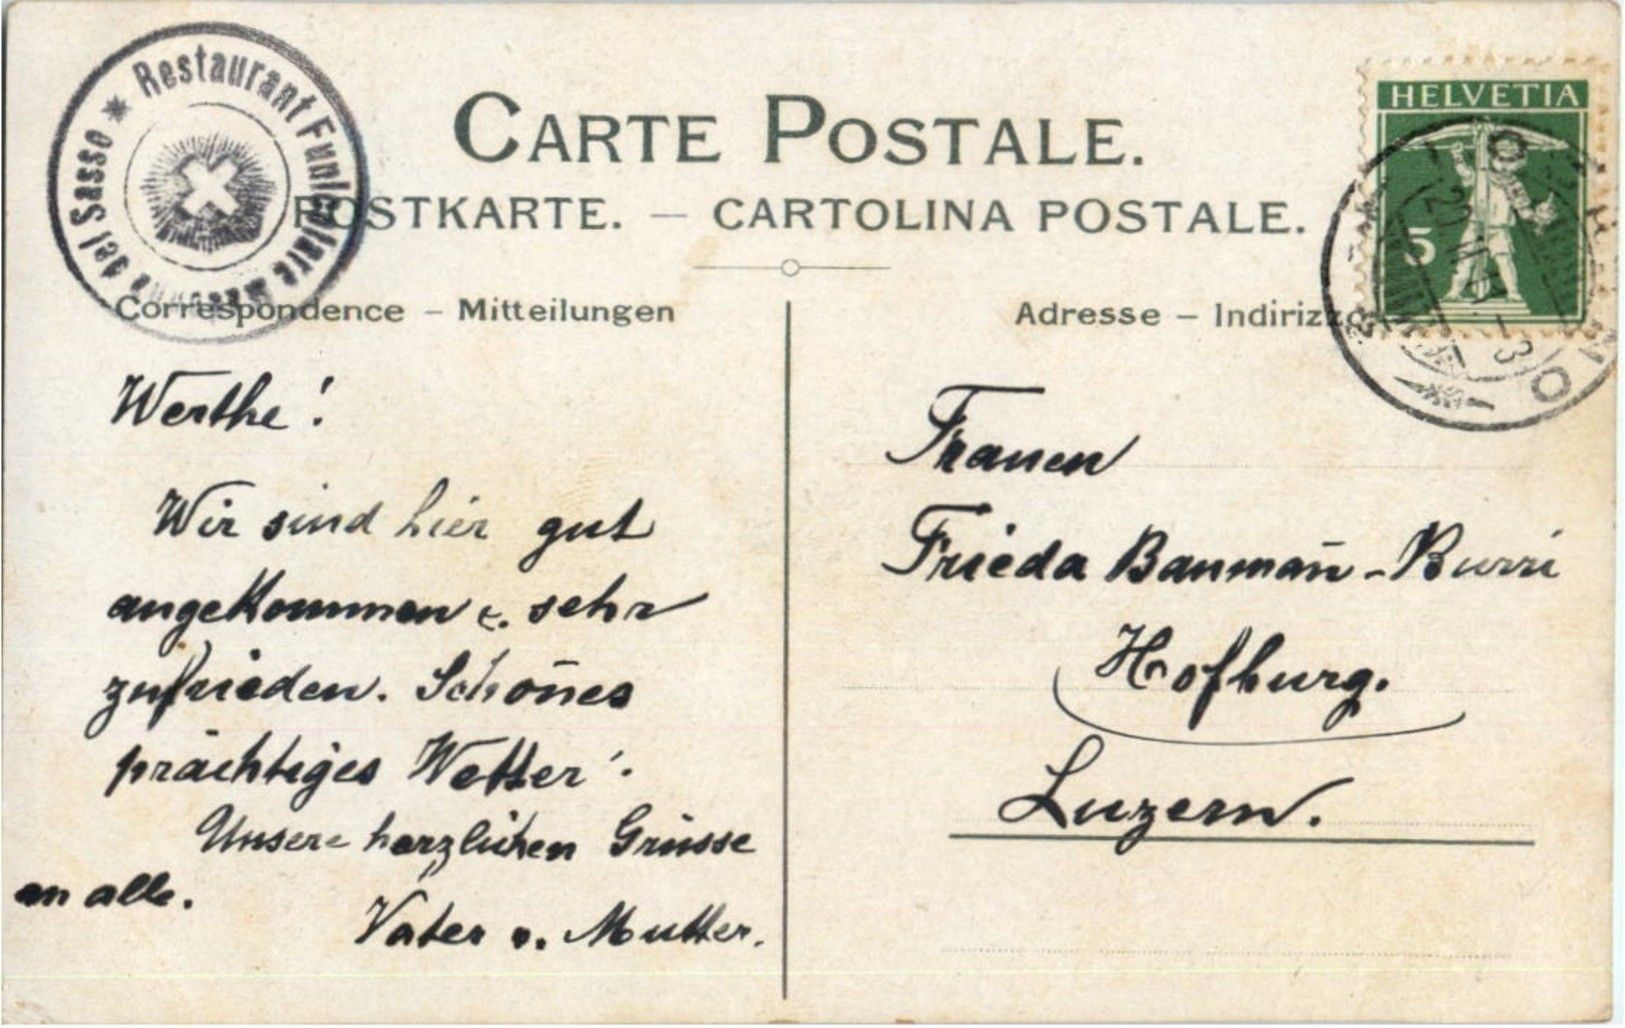 Restaurant Funicolare Madonna del Sasso *
CARTE POSTALE.
POSTKARTE. — CARTOLINA POSTALE.
Correspondence – Mitteilungen
Adresse – Indirizzo
HELVETIA
5
Werthe!
Wir sind hier gut
angekommen u. sehr
zufrieden. Schon̄es
prächtiges Wetter.
Unsere herzlichen Grüsse
an alle.
Vater u. Mutter.
Frauen
Frieda Bauman̄-Burri
Hofburg.
Luzern.